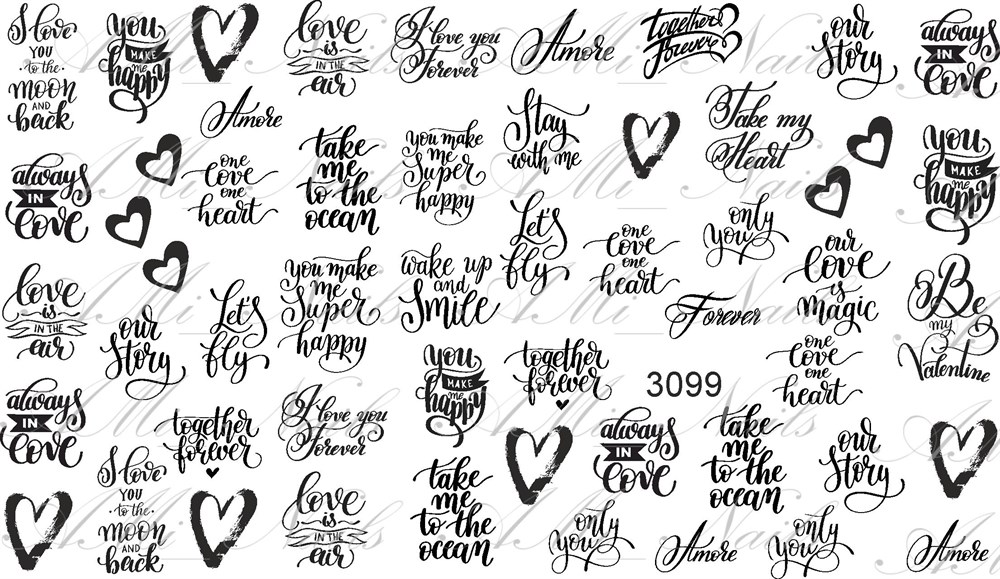 I love
YOU
to the
moon
AND
back
you
MAKE
me
happy
love
is
IN THE
air
I love you
Forever
Amore
together
Forever
our
Story
always
IN
love
Amore
always
IN
love
one
love
one
heart
take
me
to the
ocean
you make
me
Super
happy
Stay
with me
Take my
Heart
you
MAKE
me
happy
love
is
IN THE
air
our
Story
Let's
fly
you make
me
Super
happy
wake up
and
Smile
Let's
fly
one
love
one
heart
only
you
Forever
our
love
is
magic
Be
my
Valentine
always
IN
love
together
forever
I love you
Forever
you
MAKE
me
happy
together
forever
3099
one
love
one
heart
I love
YOU
to the
moon
AND
back
love
is
IN THE
air
take
me
to the
ocean
always
IN
love
take
me
to the
ocean
our
Story
only
you
Amore
only
you
Amore
AMi Nails